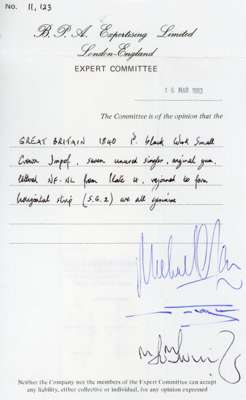 No. 11,123
B. P. A. Expertising Limited
London-England
EXPERT COMMITTEE
16 MAR 1983
The Committee is of the opinion that the
GREAT BRITAIN 1840 1d. black Wmk Small
Crown Imperf, seven unused singles, original gum,
lettered NF-NL from Plate 4, rejoined to form
horizontal strip (S.G.2) are all genuine
Neither the Company nor the members of the Expert Committee can accept
any liability, either collective or individual, for any opinion expressed